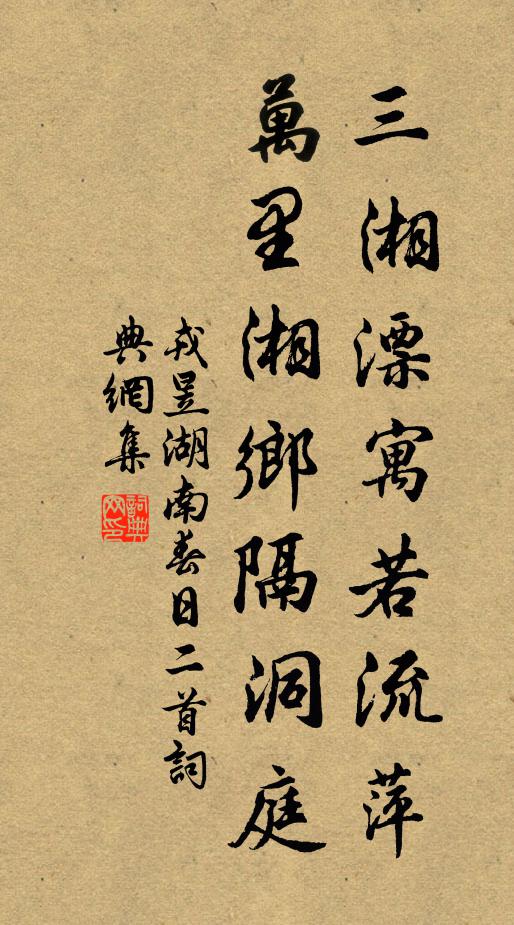 三湘漂寓若流萍
萬里湘鄉隔洞庭
戎昱湖南春日二首詞
典網集
詞典網印